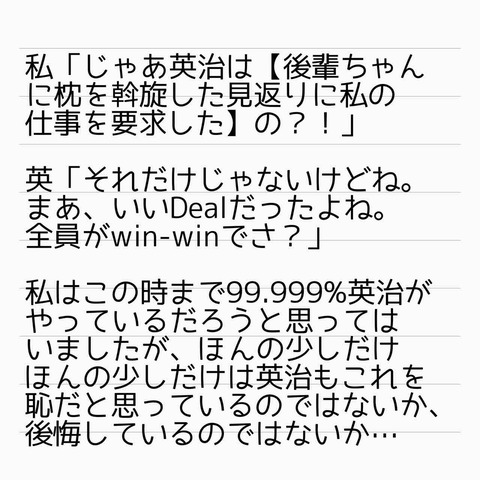 私「じゃあ英治は【後輩ちゃん
に枕を斡旋した見返りに私の
仕事を要求した】の？！」
英「それだけじゃないけどね。
まあ、いいDealだったよね。
全員がwin-winでさ？」
私はこの時まで99.999%英治が
やっているだろうと思っては
いましたが、ほんの少しだけ
ほんの少しだけは英治もこれを
恥だと思っているのではないか、
後悔しているのではないか…